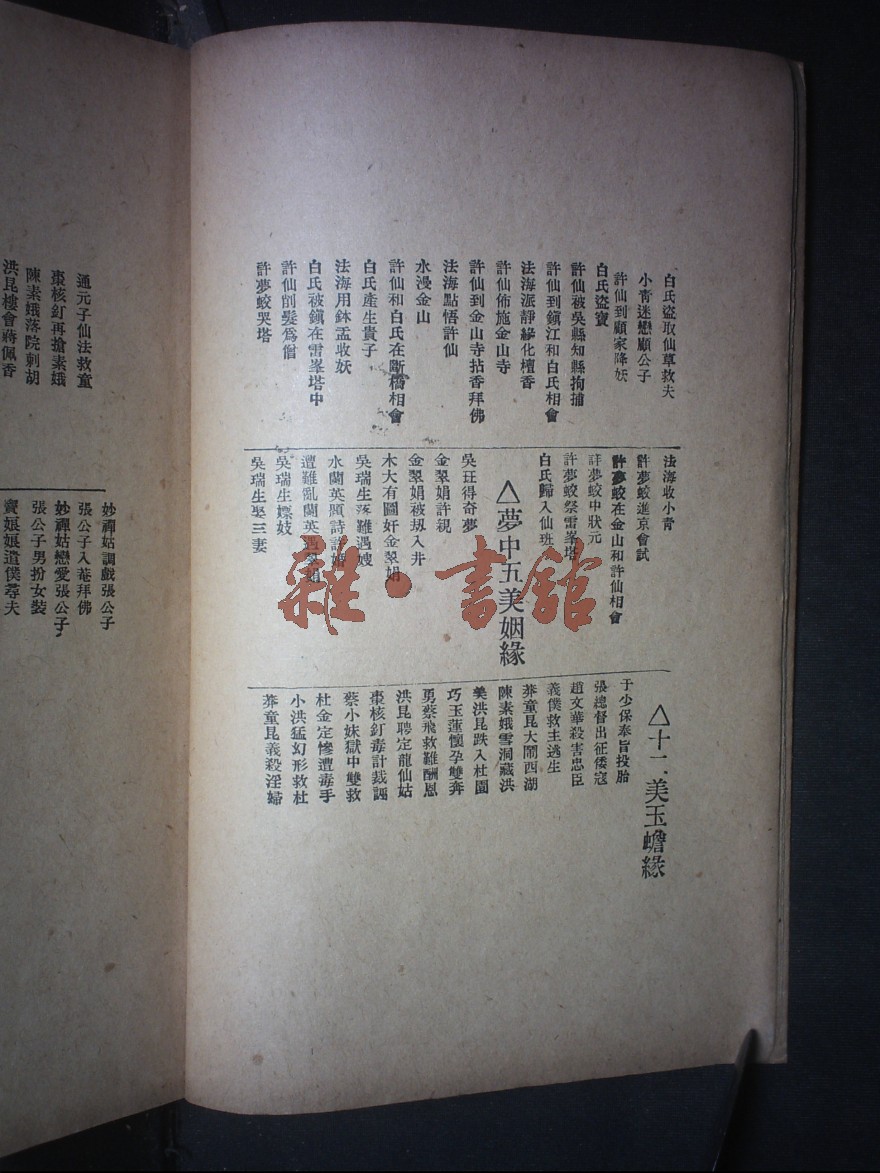 白氏盜取仙草救夫
小青迷戀顧公子
許仙到顧家降妖
白氏盜寶
許仙被吳縣知縣拘捕
許仙到鎭江和白氏相會
法海派靜緣化檀香
許仙佈施金山寺
許仙到金山寺拈香拜佛
法海點悟許仙
水漫金山
許仙和白氏在斷橋相會
白氏產生貴子
法海用鉢盂收妖
白氏被鎭在雷峯塔中
許仙削髮爲僧
許夢蛟哭塔
法海收小青
許夢蛟進京會試
許夢蛟在金山和許仙相會
許夢蛟中狀元
許夢蛟祭雷峯塔
白氏歸入仙班
△夢中五美姻緣
吳玨得奇夢
金翠娟許親
金翠娟被刼入井
木大有圖奸金翠娟
吳瑞生落難遇嫂
水蘭英題詩許婚
遭難亂蘭英遇翠娟
吳瑞生嫖妓
吳瑞生娶三妻
△十二美玉蟾緣
于少保奉旨投胎
張總督出征倭寇
趙文華殺害忠臣
義僕救主逃生
莽童昆大鬧西湖
陳素娥雪洞藏洪
美洪昆跌入杜園
巧玉蓮懷孕雙奔
勇蔡飛救難酬恩
洪昆聘定龍仙姑
棗核釘毒計栽誣
蔡小妹獄中雙救
杜金定慘遭毒手
小洪猛幻形救杜
莽童昆義殺淫婦
通元子仙法救童
棗核釘再搶素娥
陳素娥落院刺胡
洪昆樓會蔣佩香
妙禪姑調戲張公子
張公子入菴拜佛
妙禪姑戀愛張公子
張公子男扮女裝
竇娘娘遣僕尋夫
雜·書館